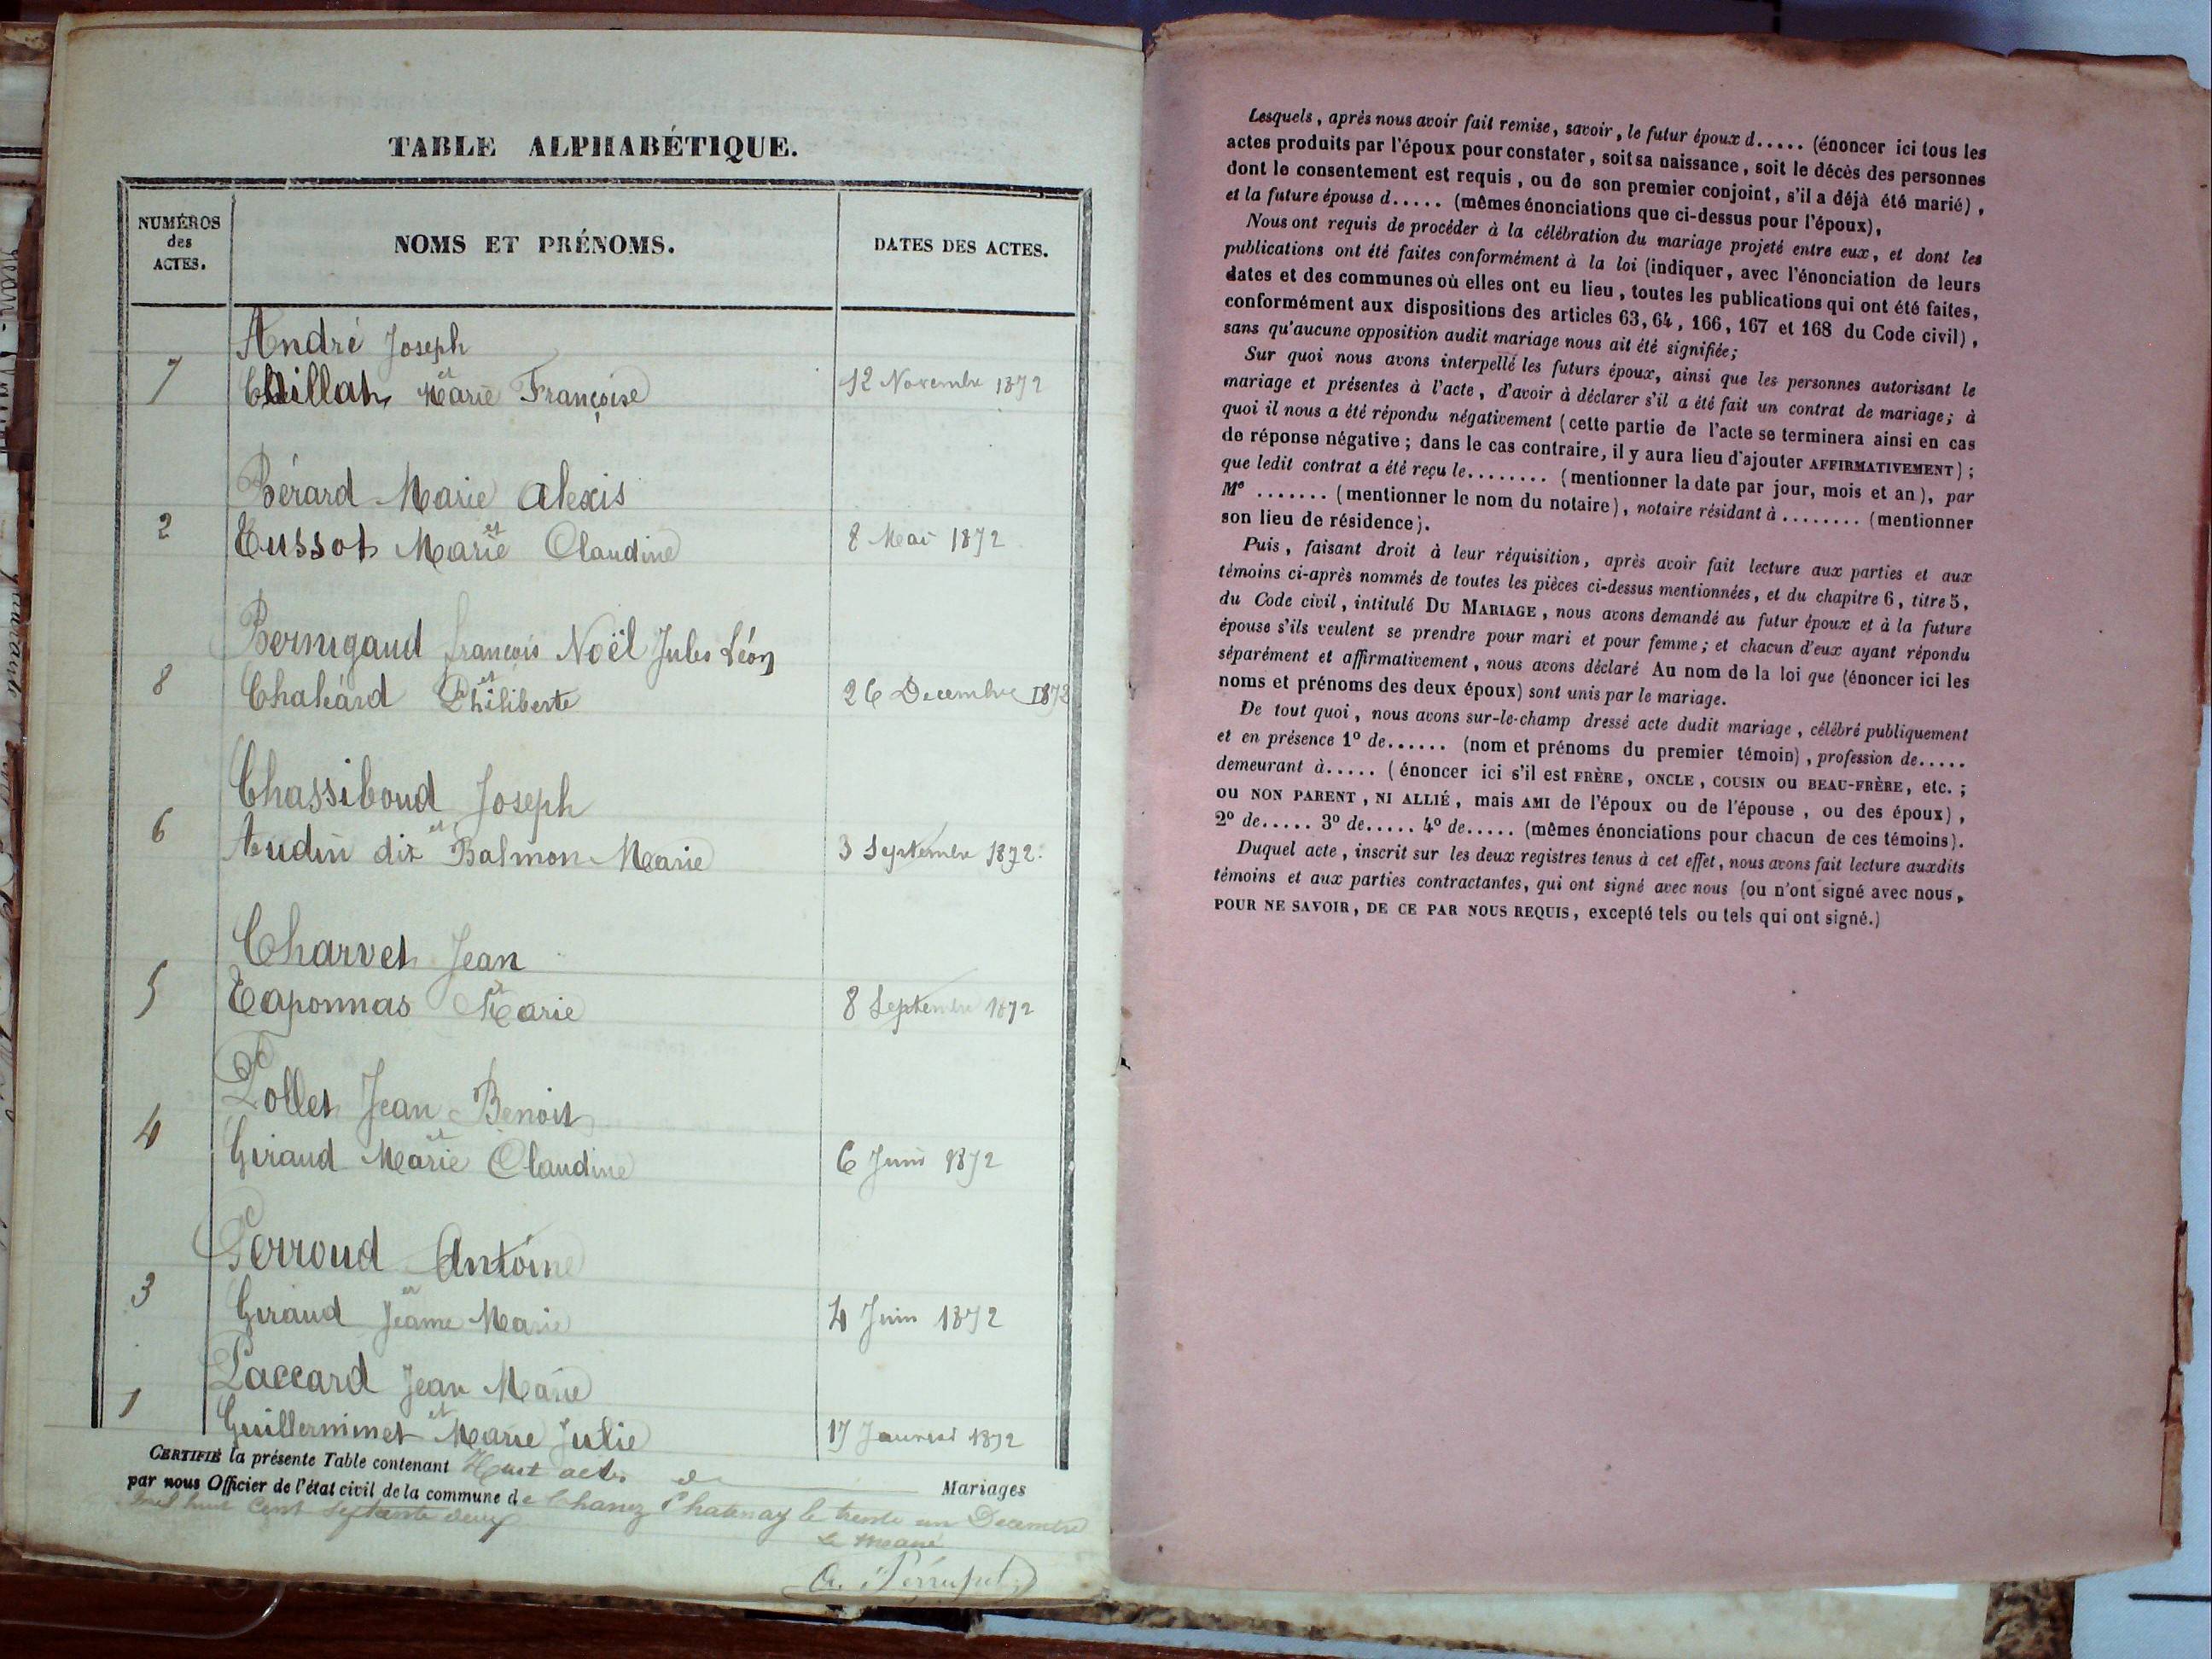 TABLE ALPHABÉTIQUE.
NUMÉROS
des
ACTES.
NOMS ET PRÉNOMS.
DATES DES ACTES.
André Joseph
et
7 Marie Françoise 12 Novembre 1872
Bérard Marie Alexis
et
2 Tussot Marie Claudine 8 Mai 1872
Bernigaud François Noël Jules Léon
et
8 Philiberte 26 Decembre 1872
Chassiboud Joseph
et
6 Audin dit Balmon Marie 3 Septembre 1872
Charvet Jean
et
5 Taponnas Marie 8 Septembre 1872
Pollet Jean Benoit
et
4 Giraud Marie Claudine 6 Juin 1872
Perroud Antoine
et
3 Giraud Jeanne Marie 4 Juin 1872
Paccard Jean Marie
et
1 Guillerminet Marie Julie 17 Janvier 1872
CERTIFIÉ la présente Table contenant Huit actes de Mariages
par nous Officier de l'état civil de la commune de Chanoz Chatenay le trente un Decembre
mil huit cent septante deux
Le Maire
Lesquels, après nous avoir fait remise, savoir, le futur époux d..... (énoncer ici tous les
actes produits par l'époux pour constater, soit sa naissance, soit le décès des personnes
dont le consentement est requis, ou de son premier conjoint, s'il a déjà été marié),
et la future épouse d..... (mêmes énonciations que ci-dessus pour l'époux),
Nous ont requis de procéder à la célébration du mariage projeté entre eux, et dont les
publications ont été faites conformément à la loi (indiquer, avec l'énonciation de leurs
dates et des communes où elles ont eu lieu, toutes les publications qui ont été faites,
conformément aux dispositions des articles 63, 64, 166, 167 et 168 du Code civil),
sans qu'aucune opposition audit mariage nous ait été signifiée;
Sur quoi nous avons interpellé les futurs époux, ainsi que les personnes autorisant le
mariage et présentes à l'acte, d'avoir à déclarer s'il a été fait un contrat de mariage; à
quoi il nous a été répondu négativement (cette partie de l'acte se terminera ainsi en cas
de réponse négative; dans le cas contraire, il y aura lieu d'ajouter AFFIRMATIVEMENT);
que ledit contrat a été reçu le........ (mentionner la date par jour, mois et an), par
Me ....... (mentionner le nom du notaire), notaire résidant à ........ (mentionner
son lieu de résidence).
Puis, faisant droit à leur réquisition, après avoir fait lecture aux parties et aux
témoins ci-après nommés de toutes les pièces ci-dessus mentionnées, et du chapitre 6, titre 5,
du Code civil, intitulé DU MARIAGE, nous avons demandé au futur époux et à la future
épouse s'ils veulent se prendre pour mari et pour femme; et chacun d'eux ayant répondu
séparément et affirmativement, nous avons déclaré Au nom de la loi que (énoncer ici les
noms et prénoms des deux époux) sont unis par le mariage.
De tout quoi, nous avons sur-le-champ dressé acte dudit mariage, célébré publiquement
et en présence 1º de...... (nom et prénoms du premier témoin), profession de.....
demeurant à..... (énoncer ici s'il est FRÈRE, ONCLE, COUSIN OU BEAU-FRÈRE, etc.;
ou NON PARENT, NI ALLIÉ, mais AMI de l'époux ou de l'épouse, ou des époux),
2º de..... 3º de..... 4º de..... (mêmes énonciations pour chacun de ces témoins).
Duquel acte, inscrit sur les deux registres tenus à cet effet, nous avons fait lecture auxdits
témoins et aux parties contractantes, qui ont signé avec nous (ou n'ont signé avec nous,
POUR NE SAVOIR, DE CE PAR NOUS REQUIS, excepté tels ou tels qui ont signé.)